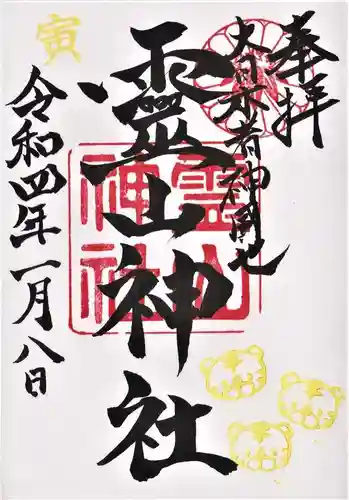 奉拝
大日本者神国也
霊山神社
靈山神社
令和四年一月八日
寅